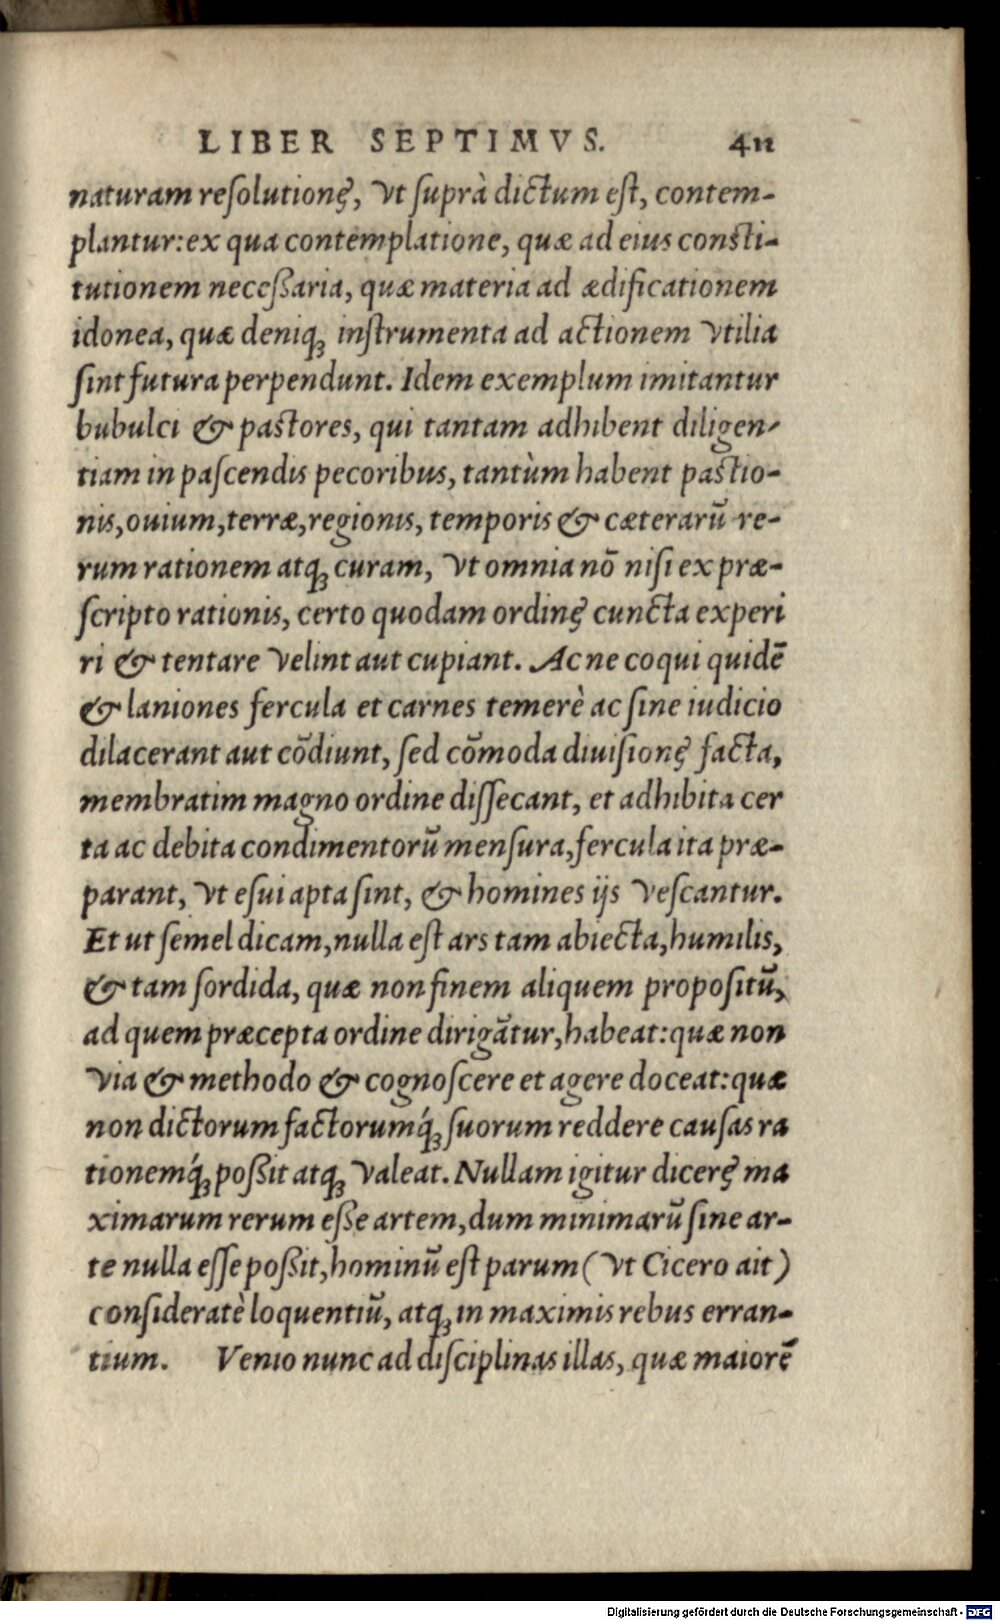 LIBER SEPTIMVS. 411
naturam reſolutionę, vt ſuprà dictum eſt, contem-
plantur: ex qua contemplatione, quæ ad eius conſti-
tutionem neceſſaria, quæ materia ad ædificationem
idonea, quæ deniq; inſtrumenta ad actionem vtilia
ſint futura perpendunt. Idem exemplum imitantur
bubulci & paſtores, qui tantam adhibent diligen-
tiam in paſcendis pecoribus, tantùm habent paſtio-
nis, ouium, terræ, regionis, temporis & cæterarū re-
rum rationem atq; curam, vt omnia nō niſi ex præ-
ſcripto rationis, certo quodam ordinę cuncta experi
ri & tentare velint aut cupiant. Ac ne coqui quidē
& laniones fercula et carnes temerè ac ſine iudicio
dilacerant aut cōdiunt, ſed cōmoda diuiſionę facta,
membratim magno ordine diſſecant, et adhibita cer
ta ac debita condimentorū menſura, fercula ita præ-
parant, vt eſui apta ſint, & homines ijs veſcantur.
Et ut ſemel dicam, nulla eſt ars tam abiecta, humilis,
& tam ſordida, quæ non finem aliquem propoſitū,
ad quem præcepta ordine dirigātur, habeat: quæ non
via & methodo & cognoſcere et agere doceat: quæ
non dictorum factorumq́; ſuorum reddere cauſas ra
tionemq́; poſſit atq; valeat. Nullam igitur dicerę ma
ximarum rerum eſſe artem, dum minimarū ſine ar-
te nulla eſſe poſſit, hominū eſt parum (vt Cicero ait)
conſideratè loquentiū, atq; in maximis rebus erran-
tium. Venio nunc ad diſciplinas illas, quæ maiorē
Digitalisierung gefördert durch die Deutsche Forschungsgemeinschaft - DFG